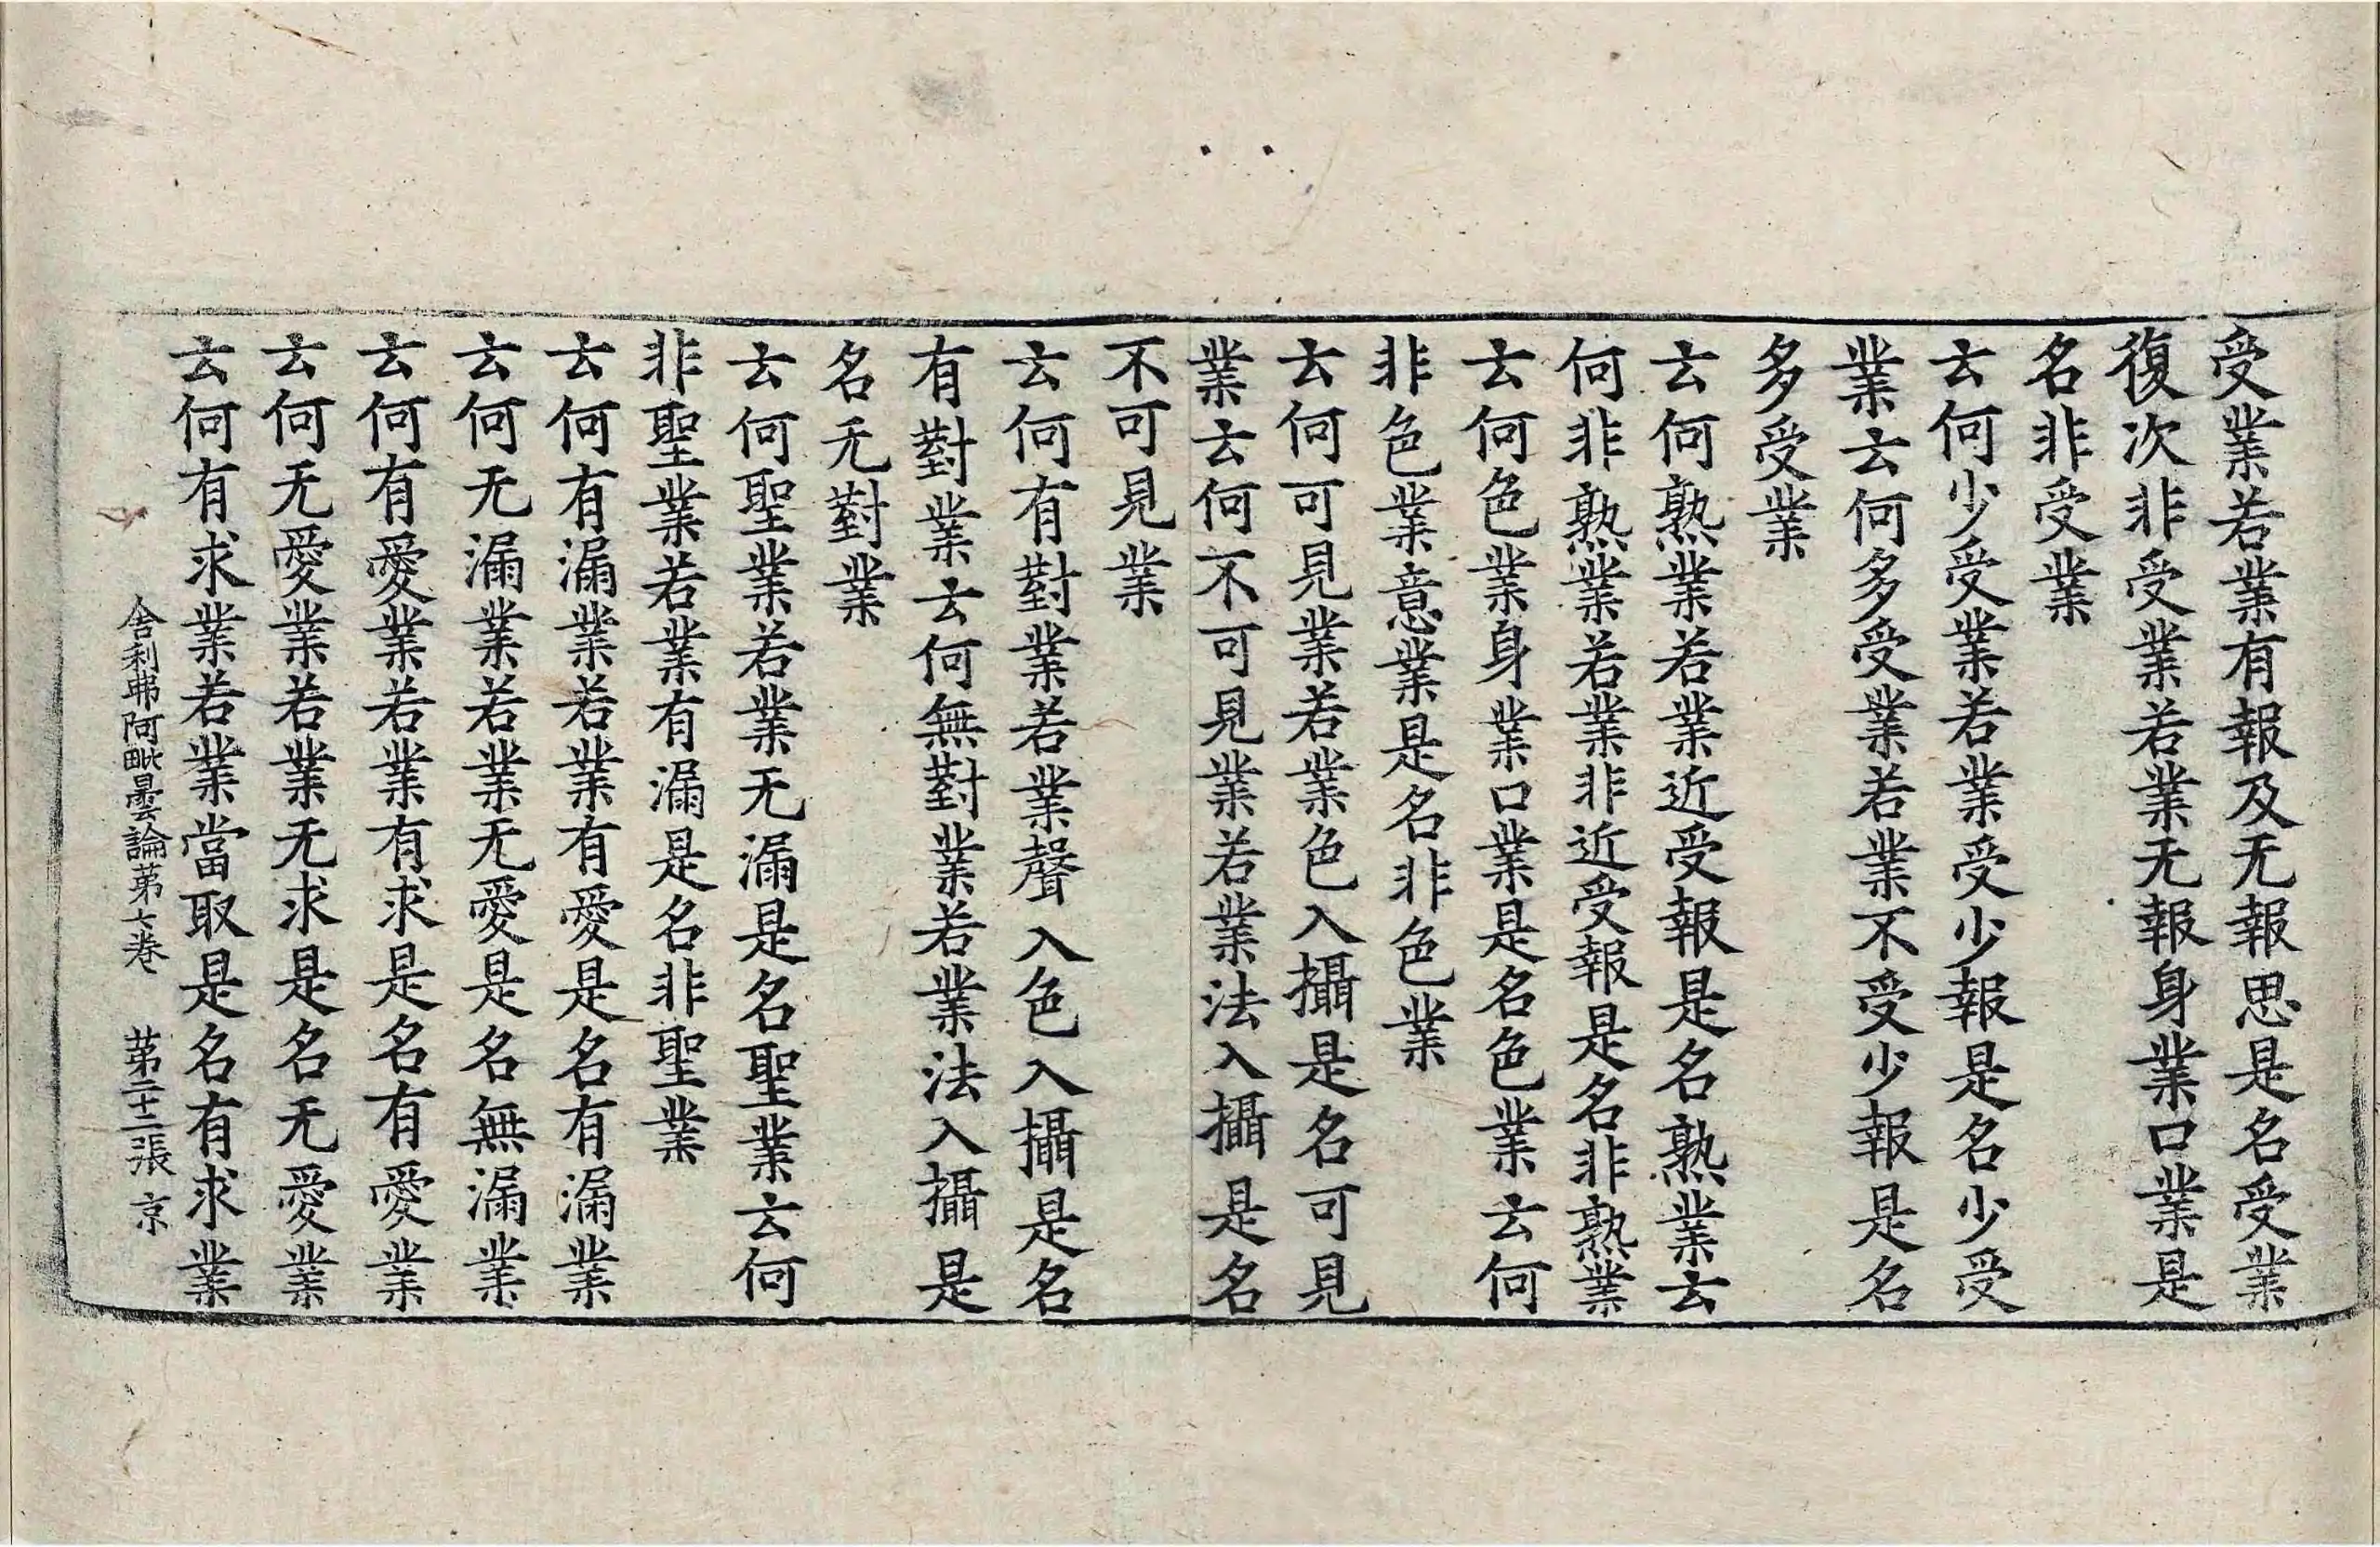 受業若業有報及无報思是名受業
復次非受業若業无報身業口業是
名非受業
云何少受業若業受少報是名少受
業云何多受業若業不受少報是名
多受業
云何熟業若業近受報是名熟業云
何非熟業若業非近受報是名非熟業
云何色業身業口業是名色業云何
非色業意業是名非色業
云何可見業若業色入攝是名可見
業云何不可見業若業法入攝是名
不可見業
云何有對業若業聲入色入攝是名
有對業云何無對業若業法入攝是
名无對業
云何聖業若業无漏是名聖業云何
非聖業若業有漏是名非聖業
云何有漏業若業有愛是名有漏業
云何无漏業若業无愛是名無漏業
云何有愛業若業有求是名有愛業
云何无愛業若業无求是名无愛業
云何有求業若業當取是名有求業
舍利弗阿毗曇論第七卷 第二十二張 京